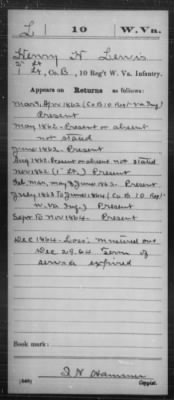 L 10 W.Va.
Henry H Lewis
2" Lt
1 Lt, Co. B, 10 Reg't W. Va. Infantry.
Appears on Returns as follows:
Mar & Apr 1862 (Co B 10 Reg't Va Inf)
Present
May 1862 - Present or absent
not stated
June 1862 - Present
Aug 1862. Present or absent not stated
Nov 1862 (1" Lt.) Present
Feb. Mar, May & June 1863 - Present
July 1863 to June 1864 (Co B 10 Reg't
W. Va Inf.) Present
Sept to Nov 1864 - Present
Dec 1864 - Loss: mustered out
Dec 29. 64 Term of
service expired
Book mark:
Copyist.